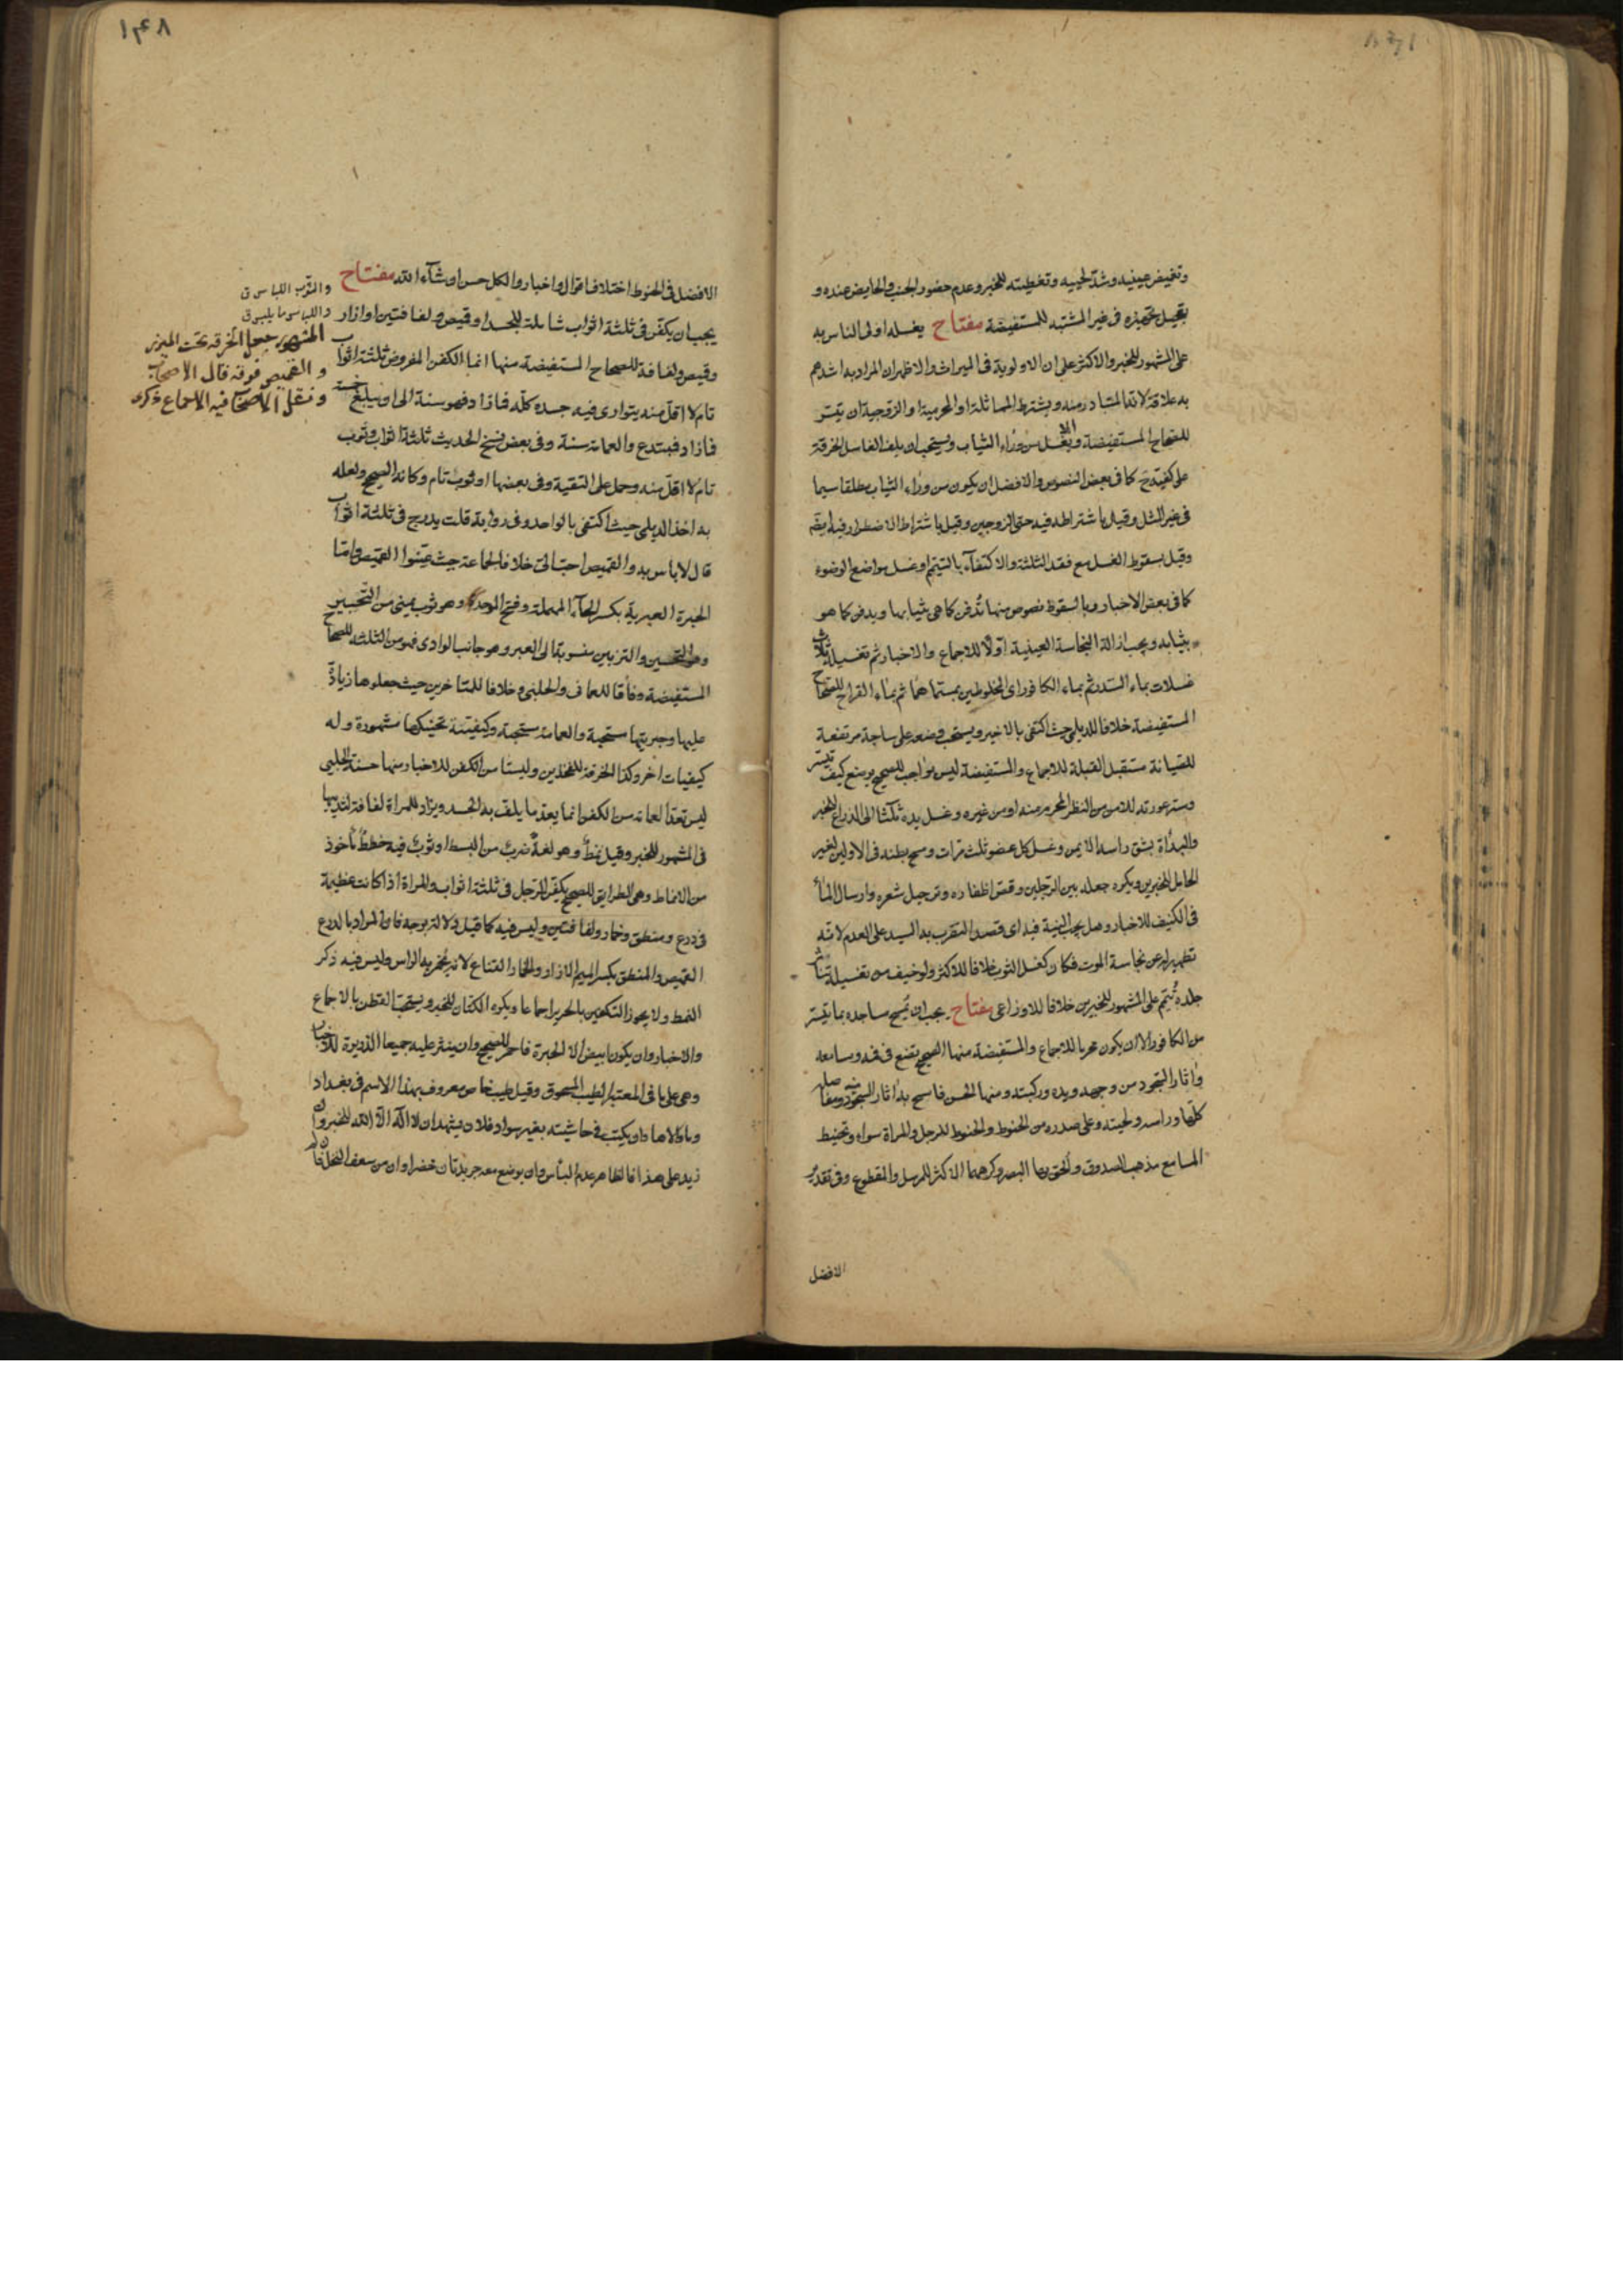 وتغميض عينيه وشد لحييه وتغطيته للخبر وعدم حضور الجنب والحايض عنده و
تعجيل تجهيزه فى غير المشتبه للمستفيضة مفتاح يغسله اولى الناس به
على المشهور للخبر والاكثر على ان الاولوية فى الميراث والاظهر ان المراد به اشدهم
به علاقة لانه المتبادر منه ويشترط المماثلة او المحرمية او الزوجية ان تيسر
للصحاح المستفيضة والا يغسل من وراء الثياب ويستحب ان يلف الغاسل الخرقة
على كفيه كما فى بعض النصوص والافضل ان يكون من وراء الثياب مطلقا سيما
فى غير المثل وقيل باشتراطه فيه حتى الزوجين وقيل باشتراط الاضطرار فيه ايضا
وقيل بسقوط الغسل مع فقد الثلثة والاكتفاء بالتيمم او غسل مواضع الوضوء
كما فى بعض الاخبار وبالسقوط نصوص منها تدفن كما هى بثيابها ويدفن كما هو
بثيابه ويجب ازالة النجاسة العينية اولا للاجماع والاخبار ثم تغسيله ثلاث
غسلات بماء السدر ثم بماء الكافور اى المخلوطين بمسماهما ثم بماء القراح للصحاح
المستفيضة خلافا للديلمى حيث اكتفى بالاخير ويستحب وضعه على ساجة مرتفعة
للصيانة مستقبل القبلة للاجماع والمستفيضة ليس بواجب للصحيح يوضع كيف تيسر
وستر عورته للامن من النظر المحرم منه او من غيره وغسل يده ثلثا الى الذراع للخبر
والبدأة بشق راسه الايمن وغسل كل عضو ثلث مرات ومسح بطنه فى الاولين لغير
الحامل للخبرين ويكره جعله بين الرجلين وقص اظفاره وترجيل شعره وارسال الماء
فى الكنيف للاخبار وهل يجب النية فيه اى قصد التقرب به السيد على العدم لانه
تطهير له عن نجاسة الموت فكان كغسل الثوب خلافا للاكثر ولو خيف من تغسيله تناثر
جلده تيمم على المشهور للخبرين خلافا للاوزاعى مفتاح يجب ان يمسح مساجده بما تيسر
من الكافور الا ان يكون محرما للاجماع والمستفيضة منها الصحيح تضع فى فمه ومسامعه
واثار السجود من وجهه ويده وركبتيه ومنها الحسن فامسح به اثار السجود ومفاصله
كلها وراسه ولحيته وعلى صدره من الحنوط والحنوط للرجل والمراة سواء وتحنيط
المسامع مذهب الصدوق والحق بها البصر وكرههما الاكثر للمرسل والمقطوع وفى تقدير
الافضل
١٤٨
الافضل فى الحنوط اختلاف اقوال واخبار والكل حسن ان شاء الله مفتاح
يجب ان يكفن فى ثلثة اثواب شاملة للجسد او قميص ولفافتين او ازار
وقميص ولفافة للصحاح المستفيضة منها انما الكفن المفروض ثلثة اثواب
تام لا اقل منه يوارى فيه جسده كله فما زاد فهو سنة الى ان يبلغ خمسة
فما زاد فمبتدع والعمامة سنة وفى بعض نسخ الحديث ثلثة اثواب وثوب
تام لا اقل منه وحمل على التقية وفى بعضها او ثوب تام وكانه الصحيح ولعله
به اخذ الديلمى حيث اكتفى بالواحد وفى رواية قلت يدرج فى ثلثة اثواب
قال لا باس به والقميص احب الى خلافا لجماعة حيث عينوا القميص واما
الحبرة العبرية بكسر الحاء المهملة وفتح الموحدة وهو ثوب يمنى من التحبير
وهو التحسين والتزيين منسوبة الى العبر وهو جانب الوادى فهو من الثلثة للصحاح
المستفيضة وفاقا للعمانى والحلبى وخلافا للمتاخرين حيث جعلوها زيادة
عليها وحبريتها مستحبة والعمامة مستحبة وكيفيته تحنيكها مشهورة وله
كيفيات اخر وكذا الخرقة للفخذين وليستا من الكفن للاخبار ومنها حسنة الحلبى
ليس تعد العمامة من الكفن انما يعد ما يلف به الجسد ويزاد للمراة لفافة لثدييها
فى المشهور للخبر وقيل نمط وهو لغة ضرب من البسط او ثوب فيه خطط ماخوذ
من الانماط وهى الطرايق للصحيح يكفن الرجل فى ثلثة اثواب والمراة اذا كانت عظيمة
فى درع ومنطق وخمار ولفافتين وليس فيه كما قيل دلالة بوجه فان المراد بالدرع
القميص والمنطق بكسر الميم الازار والخمار القناع لانه يخمر به الراس وليس فيه ذكر
النمط ولا يجوز التكفين بالحرير اجماعا ويكره الكتان للخبر ويستحب القطن بالاجماع
والاخبار وان يكون ابيض الا الحبرة فاحمر للصحيح وان ينثر عليه جميعا الذريرة للاخبار
وهى على ما فى المعتبر الطيب المسحوق وقيل طيب خاص معروف بهذا الاسم فى بغداد
وما والاها وان يكتب فى حاشيته بغير سواد فلان يشهد ان لا اله الا الله للخبر وان
زيد على هذا فالظاهر عدم الباس وان يوضع معه جريدتان خضراوان من سعف النخل فان لم
والثوب اللباس ق
واللباس ما يلبس ق
المشهور جعل الخرقة تحت الميزر
والقميص فوقه قال الاصحاب
ونقل الاصحاب فيه الاجماع ذكرى